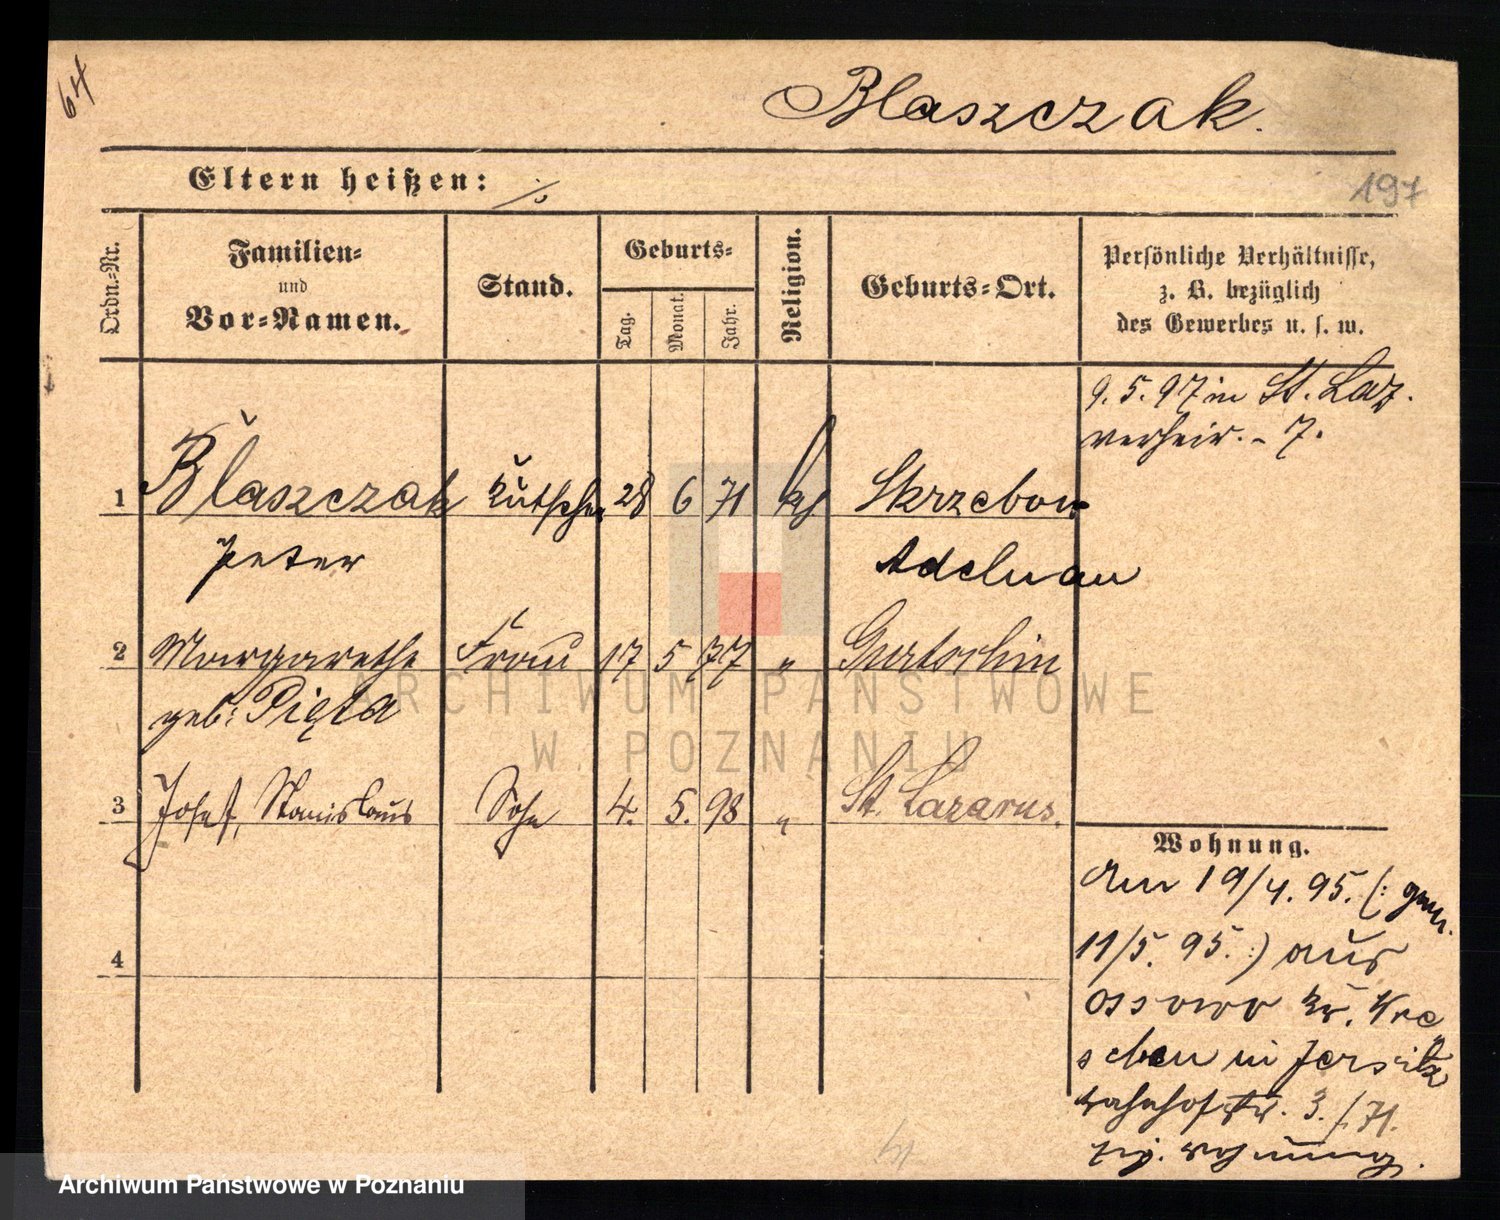 64
Blaszczak.
Eltern heißen: ./.
197
Ordn.-Nr.
Familien-
und
Vor-Namen.
Stand.
Geburts-
Tag.
Monat.
Jahr.
Religion.
Geburts-Ort.
Persönliche Verhältnisse,
z. B. bezüglich
des Gewerbes u. s. w.
9. 5. 97 in St. Laz.
verheir. - 7.
1 Blaszczak Kutscher 28 6 71 kath Skrzebow
Peter Adelnau
2 Margarethe Frau 17 5 77 "
geb: Pięta
3 Josef, Stanislaus Sohn 4. 5. 98 " St. Lazarus.
4
Wohnung.
Am 19/4. 95. (: gem.
11/5. 95. :) aus
Ossowo Kr. Wre-
schen in Jersitz
Bahnhofstr. 3. /. 71.
Wohnung.
ARCHIWUM PAŃSTWOWE
W POZNANIU
Archiwum Państwowe w Poznaniu